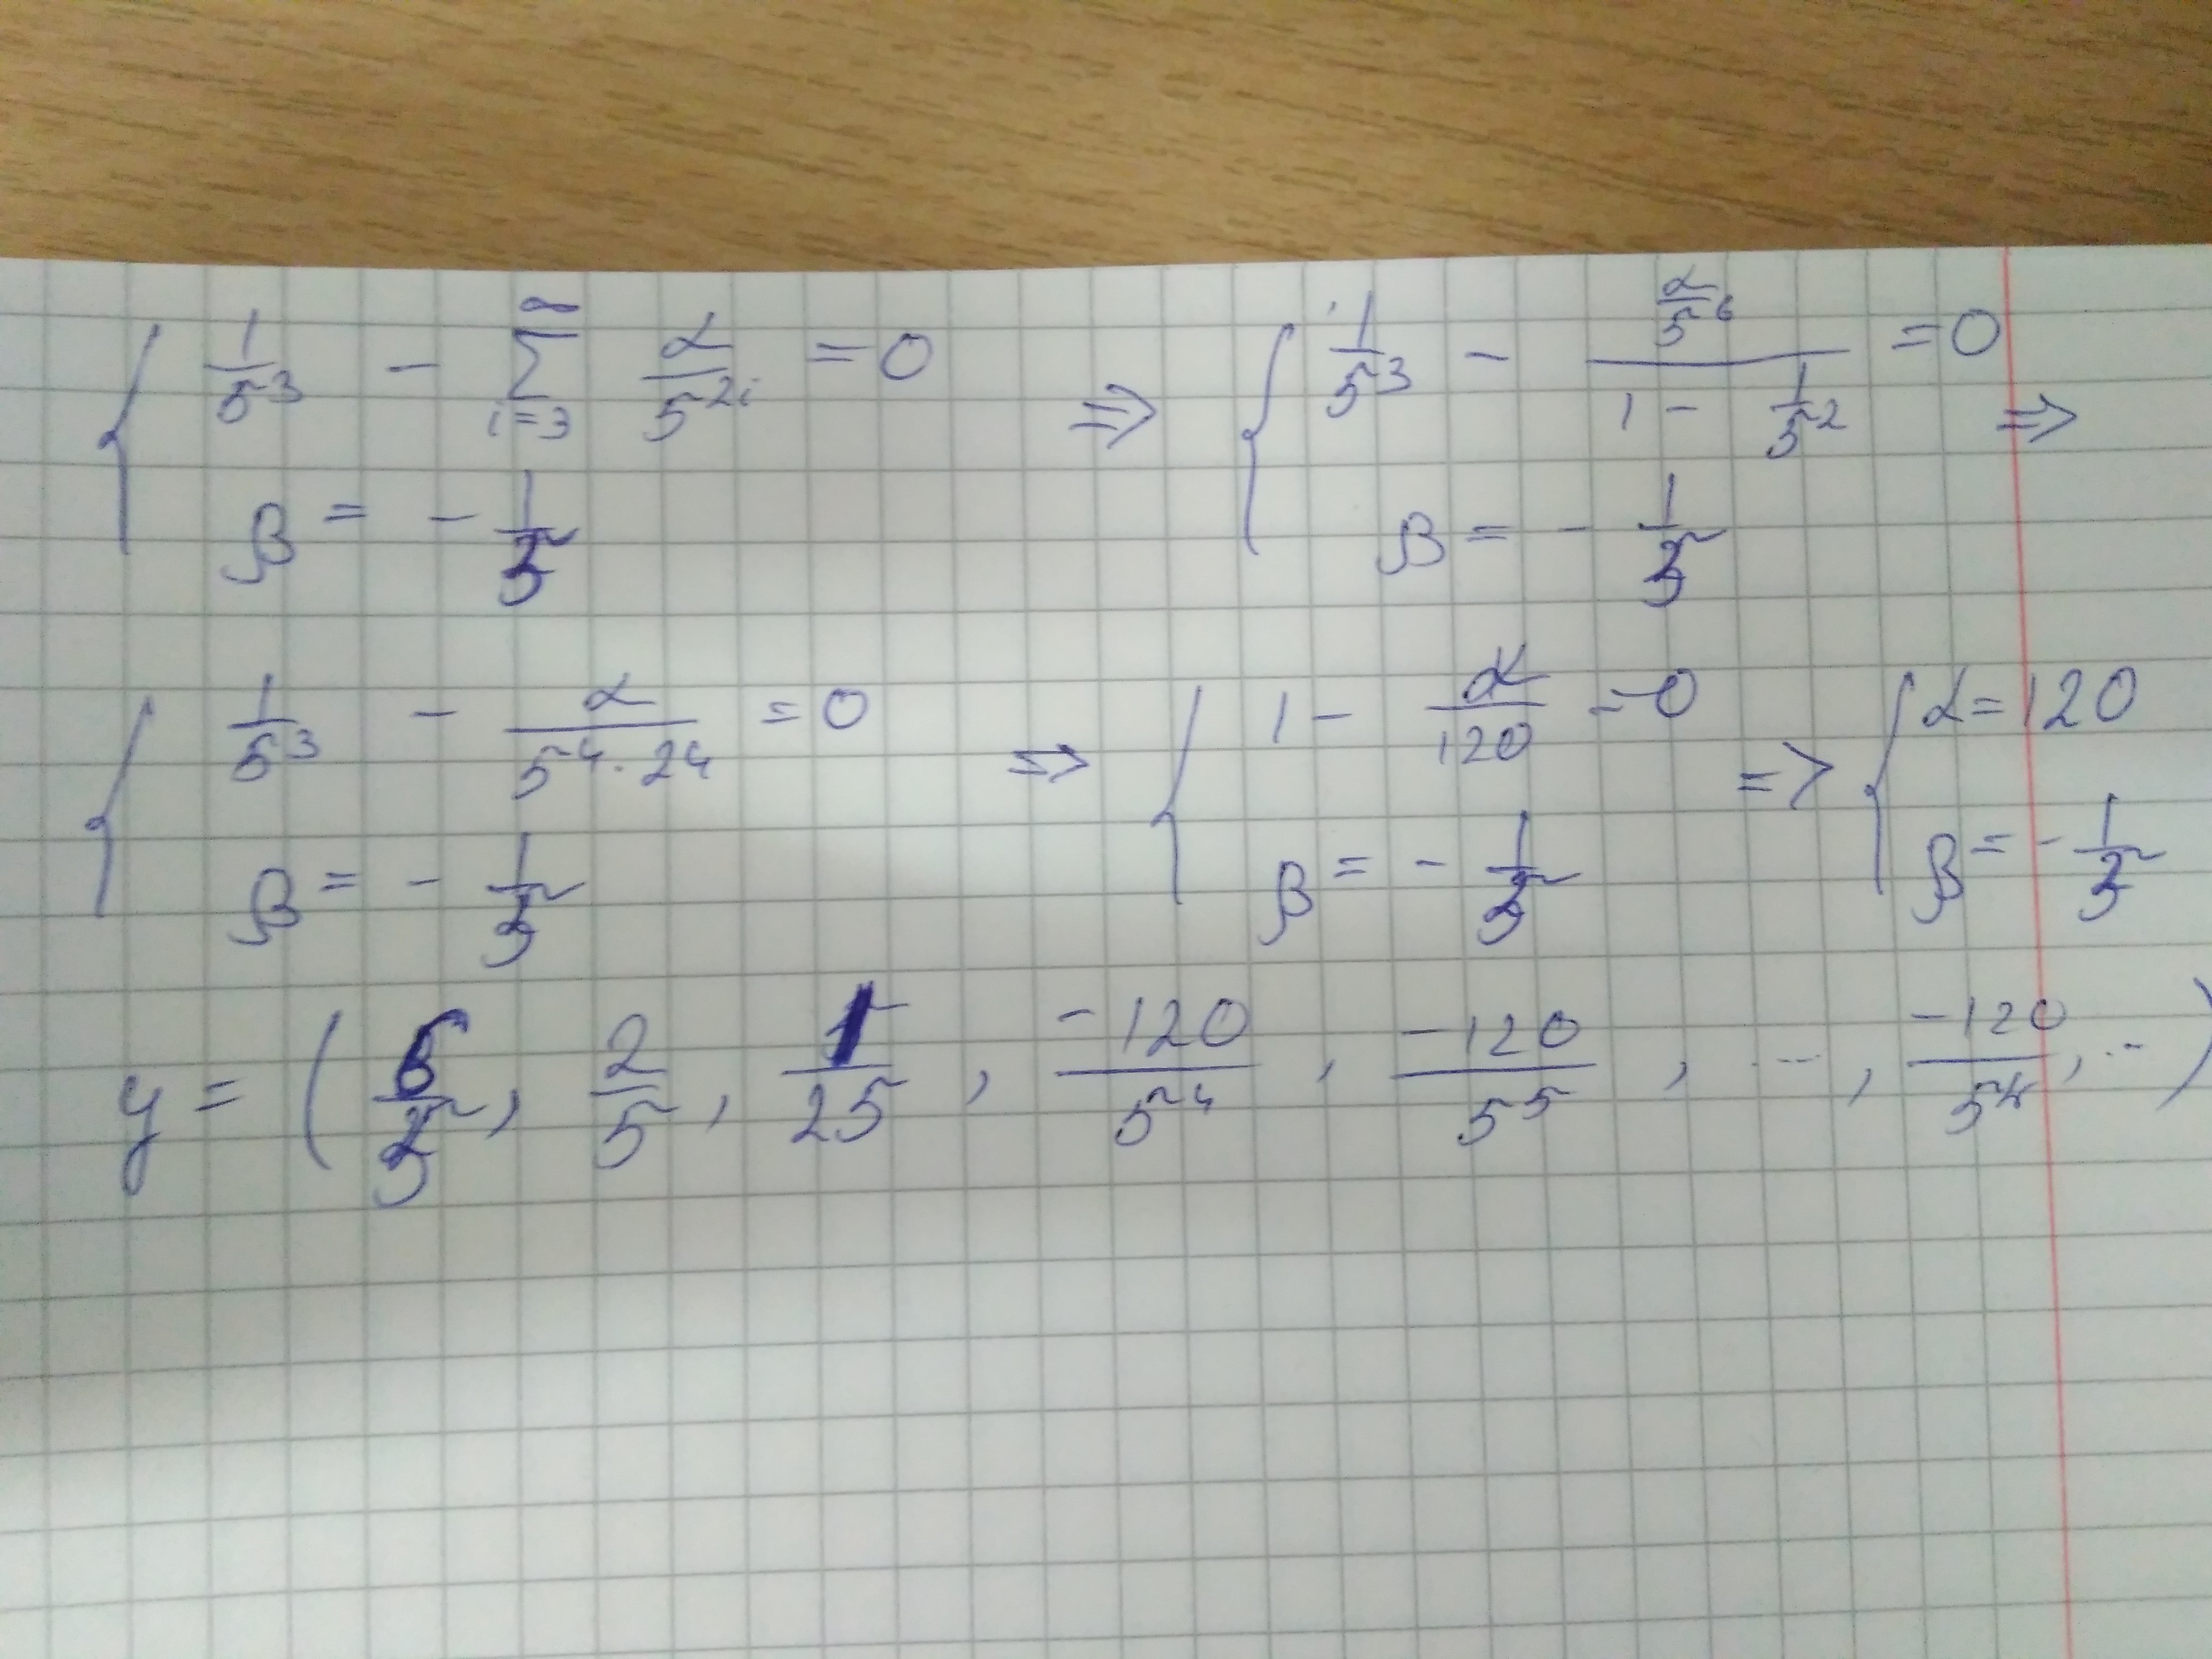 { 1/5^3 - ∑_{i=3}^{∞} α/5^{2i} = 0 ; β = - 1/5 ⇒ { 1/5^3 - (α/5^6)/(1 - 1/5^2) = 0 ; β = - 1/5 ⇒
{ 1/5^3 - α/(5^4 · 24) = 0 ; β = - 1/5 ⇒ { 1 - α/120 = 0 ; β = - 1/5 => { α = 120 ; β = - 1/5
y = ( 6/5, 2/5, 1/25, -120/5^4, -120/5^5, ..., -120/5^k, .. )